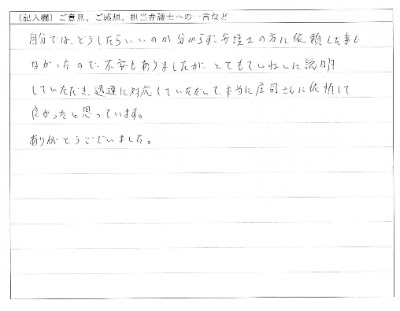 （記入欄）ご意見、ご感想、担当弁護士への一言など
自分では、どうしたらいいのか分からず、弁護士の方に依頼した事も
なかったので不安もありましたが、とてもていねいに説明
していただき、迅速に対応していただいて、本当に庄司さんに依頼して
良かったと思っています。
ありがとうございました。